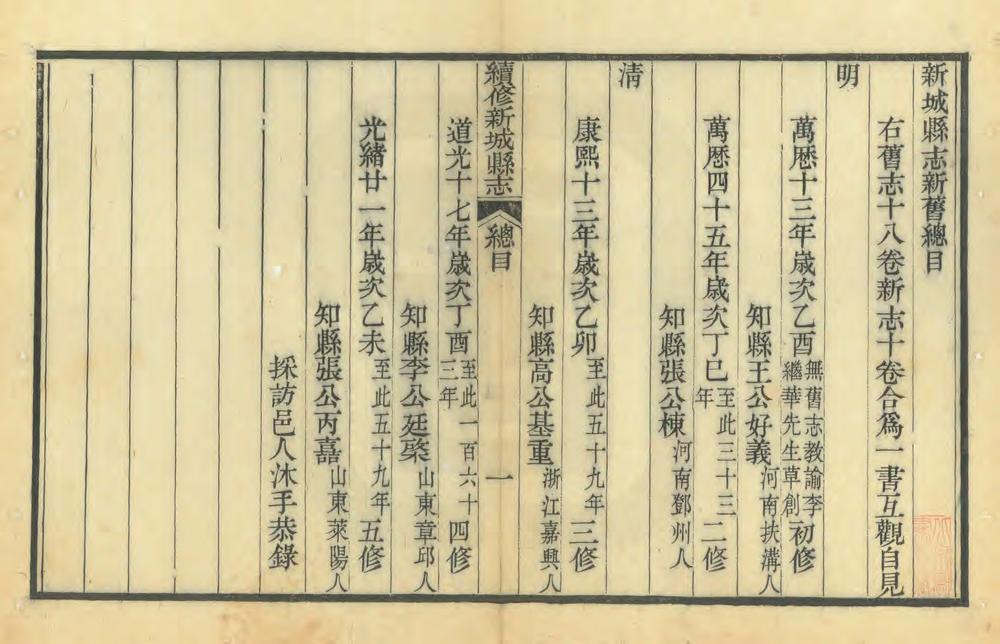 新城縣志新舊總目
右舊志十八卷新志十卷合爲一書互觀自見
明
萬曆十三年歲次乙酉無舊志教諭李繼華先生草創初修
知縣王公好義河南扶溝人
萬曆四十五年歲次丁巳至此三十三年二修
知縣張公棟河南鄧州人
清
康熙十三年歲次乙卯至此五十九年三修
知縣高公基重浙江嘉興人
續修新城縣志
總目
一
道光十七年歲次丁酉至此一百六十三年四修
知縣李公廷棨山東章邱人
光緒廿一年歲次乙未至此五十九年五修
知縣張公丙嘉山東萊陽人
採訪邑人沐手恭錄